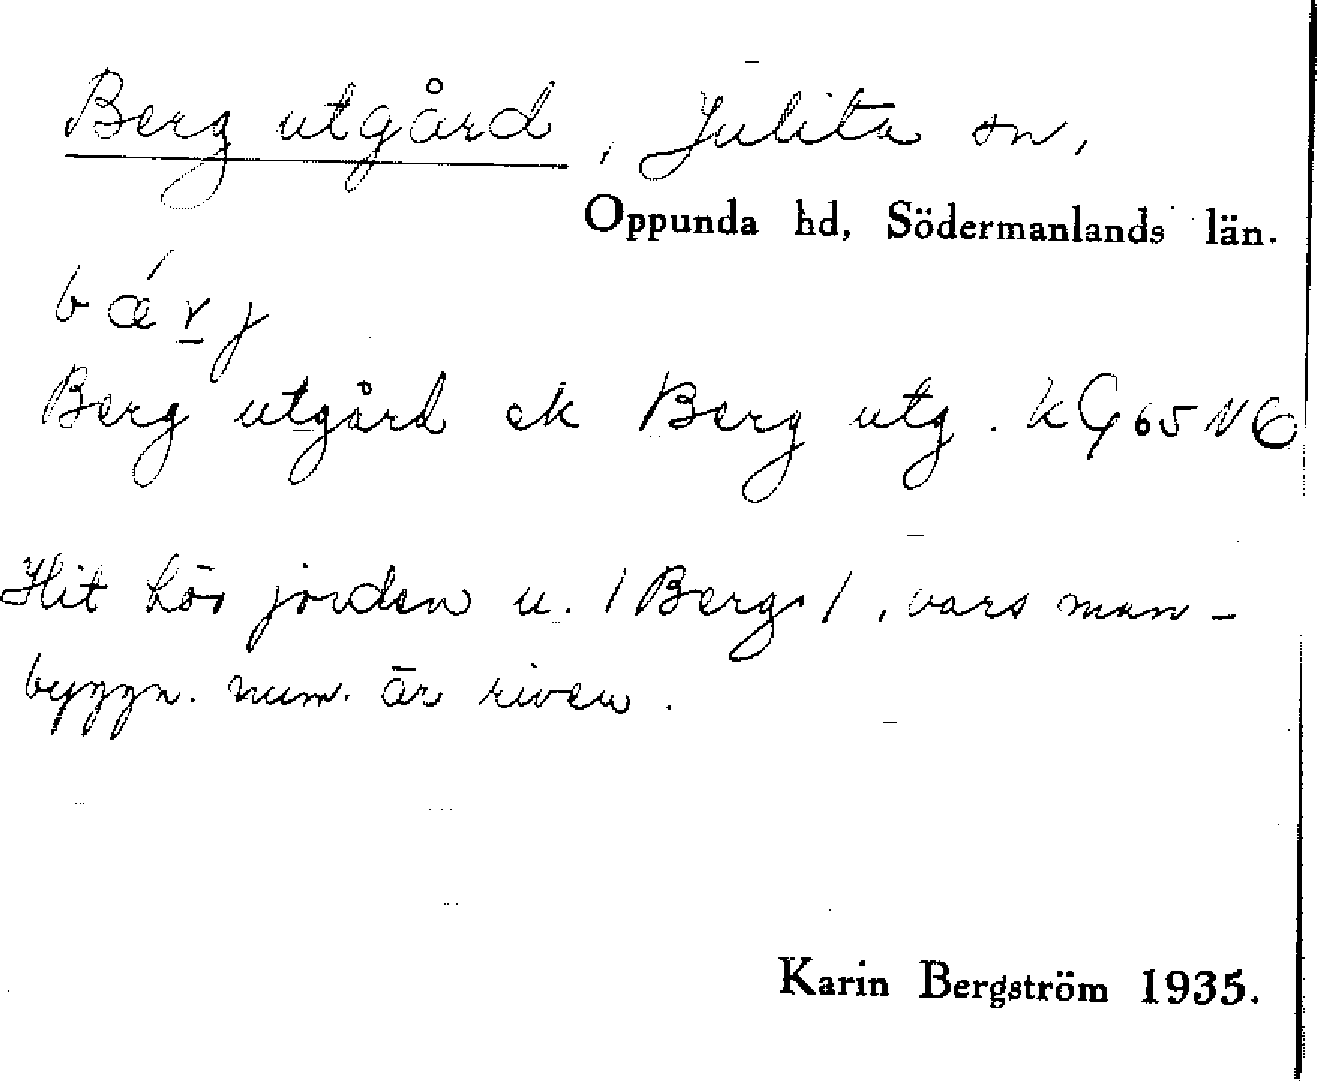 Berg utgård, Julita sn,
Oppunda hd, Södermanlands län.
bǽrj
Berg utgård ek Berg utg. kG 65 NO
Hit hör jorden u. /Berga/, vars man-
byggn. num. är riven.
Karin Bergström 1935.